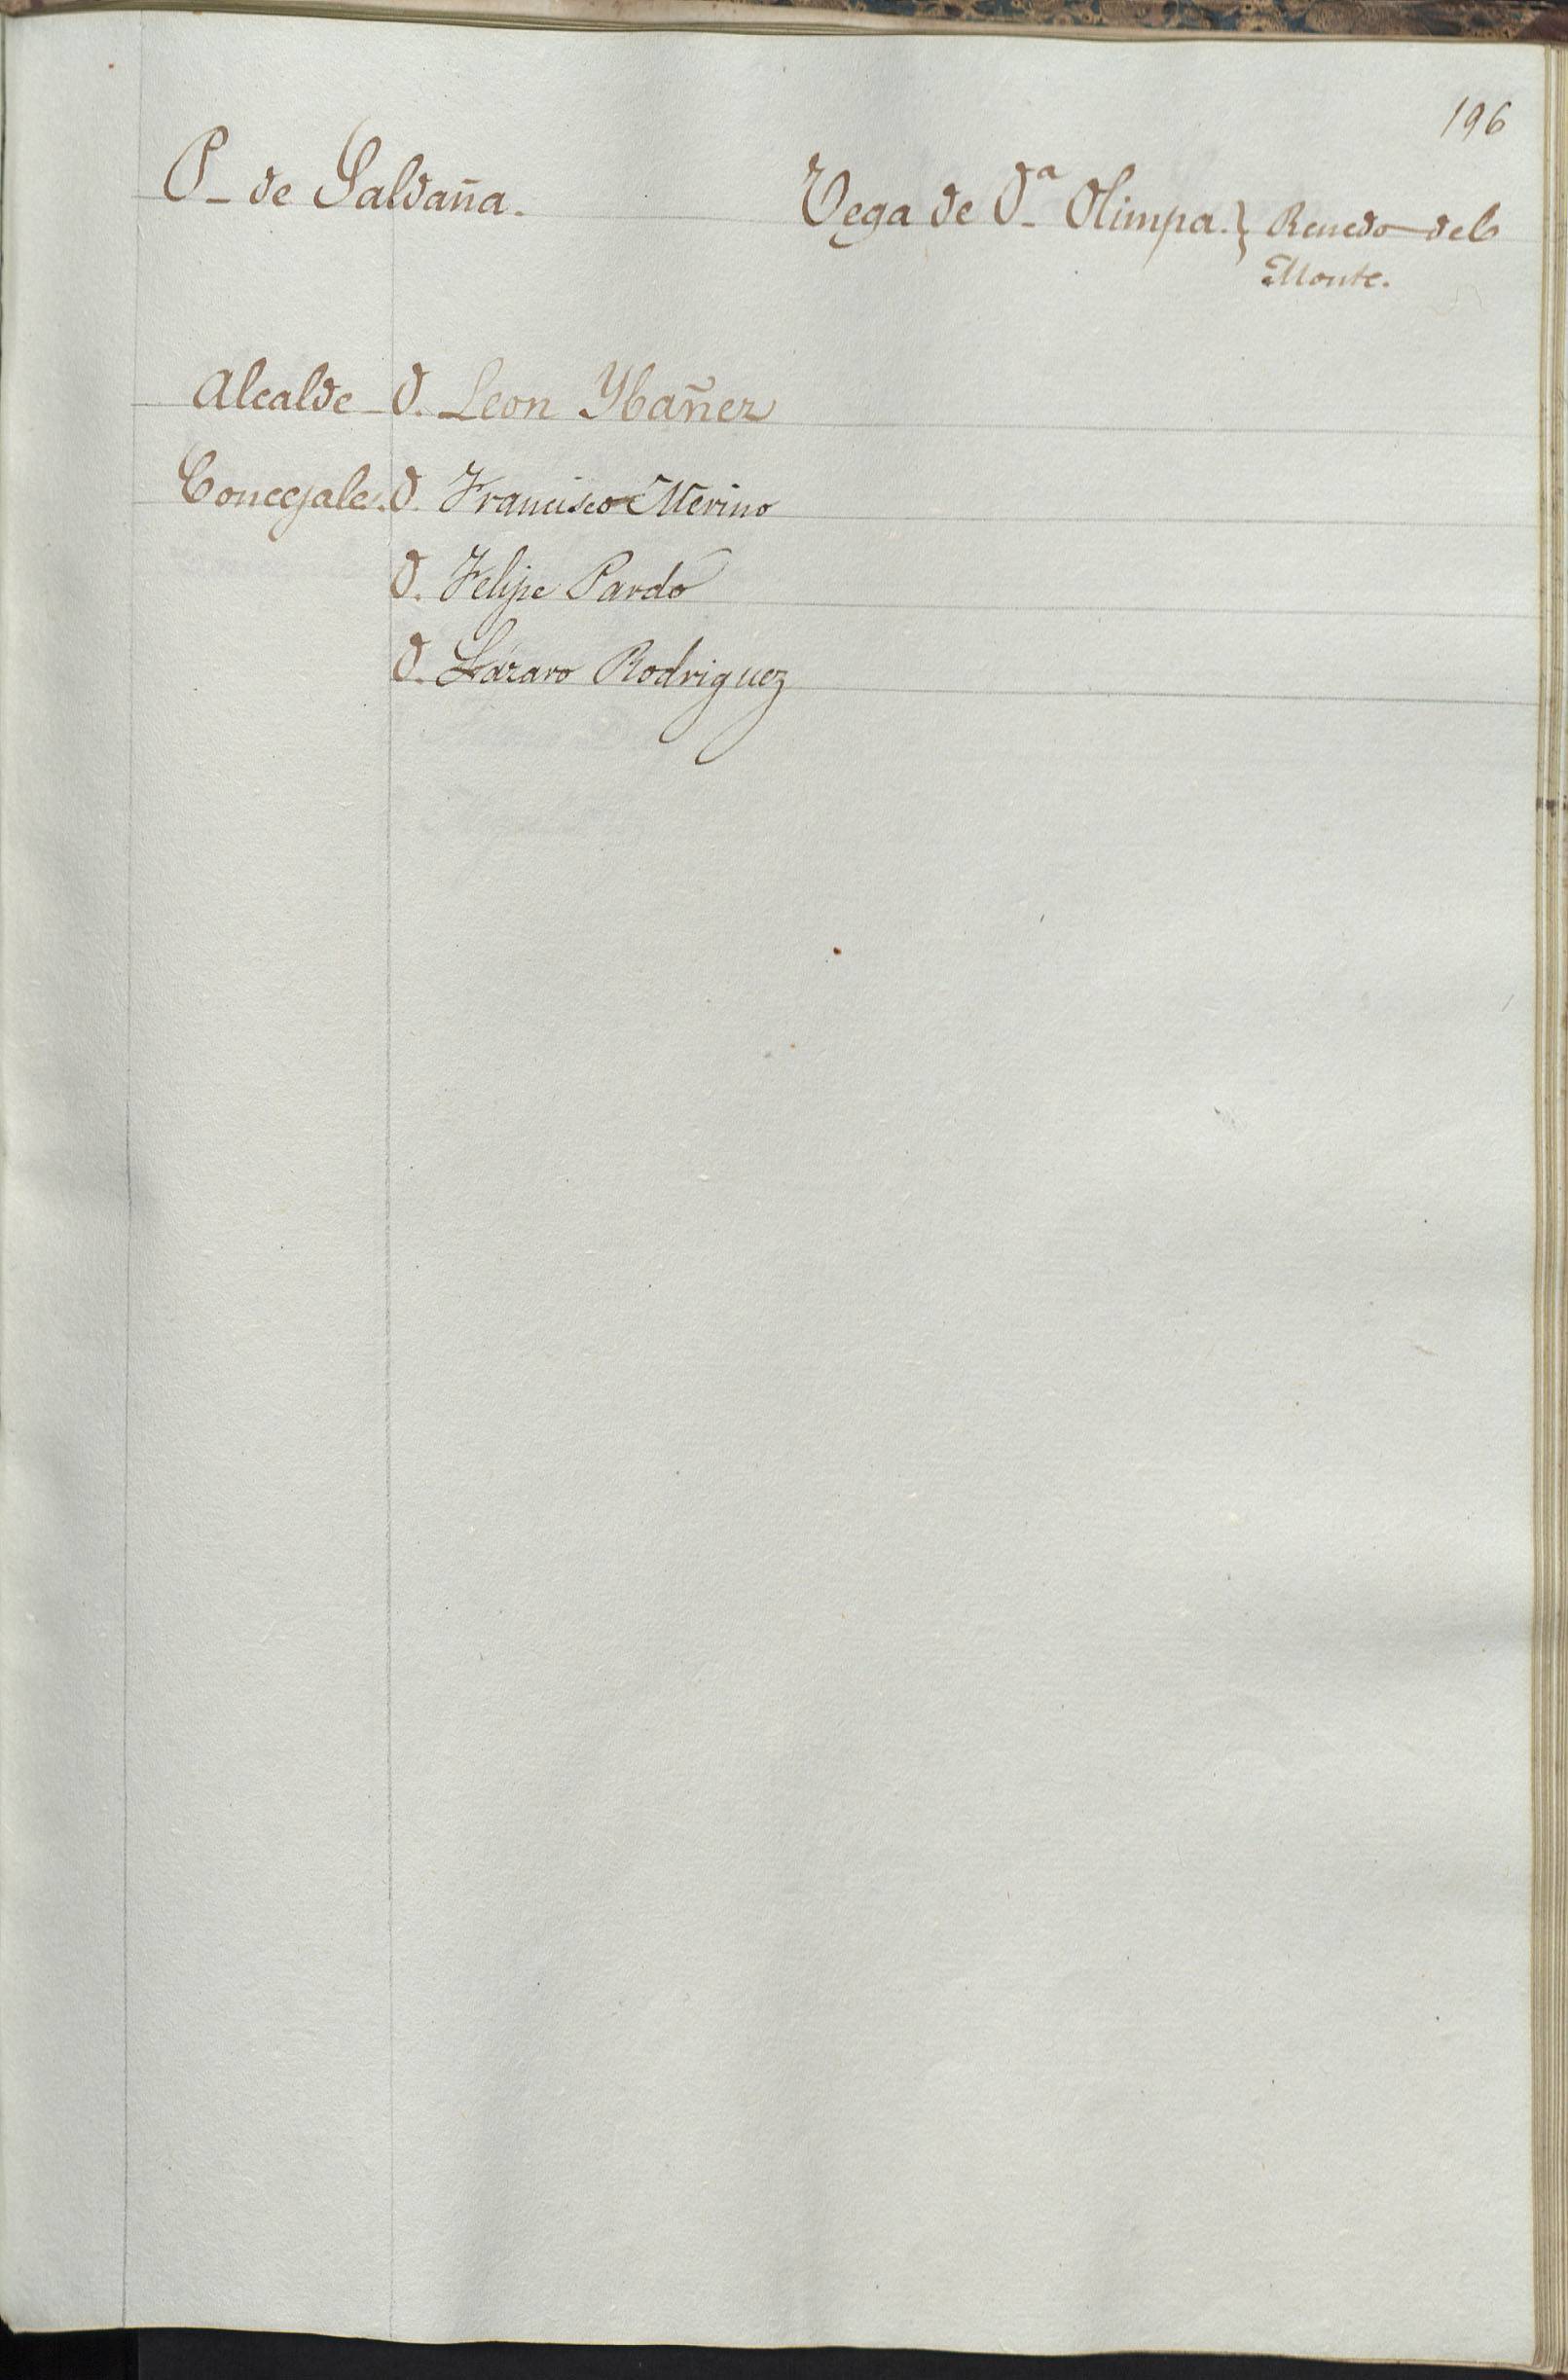 196
P_ de Saldaña.
Vega de Dª Olimpa. } Renedo del
Monte.
Alcalde D. Leon Ybañez
Concejales. D. Francisco Merino
D. Felipe Pardo
D. Lázaro Rodriguez